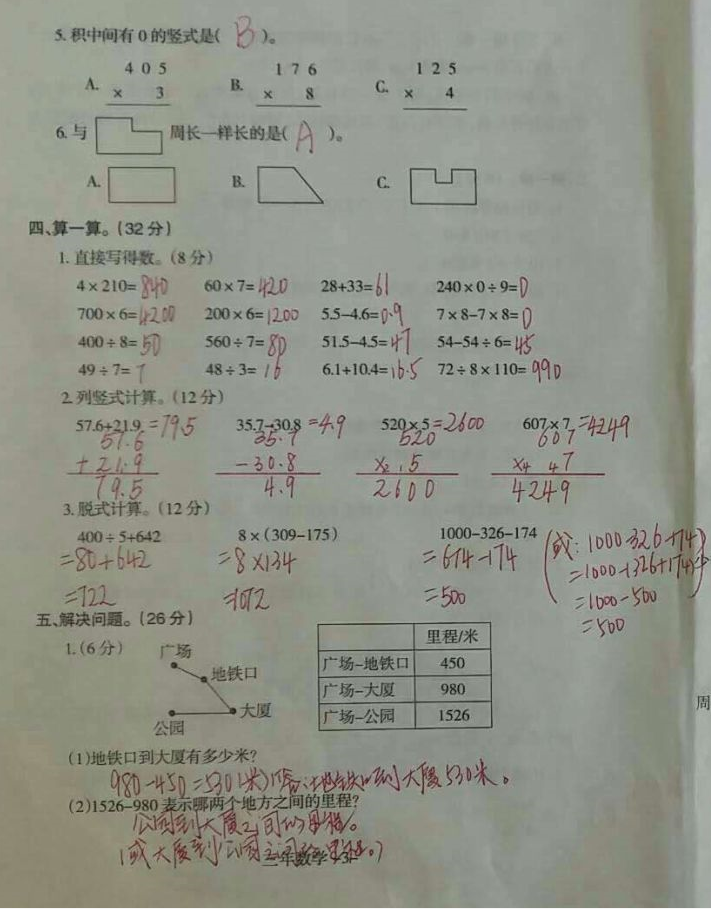 5. 积中间有0的竖式是( B )。
A. 405 × 3 B. 176 × 8 C. 125 × 4
6. 与 周长一样长的是( A )。
A. B. C.
四、算一算。(32分)
1. 直接写得数。(8分)
4×210=840 60×7=420 28+33=61 240×0÷9=0
700×6=4200 200×6=1200 5.5-4.6=0.9 7×8-7×8=0
400÷8=50 560÷7=80 51.5-4.5=47 54-54÷6=45
49÷7=7 48÷3=16 6.1+10.4=16.5 72÷8×110=990
2. 列竖式计算。(12分)
57.6+21.9=79.5 35.7-30.8=4.9 520×5=2600 607×7=4249
57.6 35.7 520 607
+21.9 -30.8 ×2 1 5 ×4 4 7
79.5 4.9 2600 4249
3. 脱式计算。(12分)
400÷5+642 8×(309-175) 1000-326-174 (或:1000-326-174
=80+642 =8×134 =674-174 =1000-(326+174)
=722 =1072 =500 =1000-500
=500
五、解决问题。(26分)
1. (6分)
广场
地铁口
大厦
公园
里程/米
广场-地铁口 450
广场-大厦 980
广场-公园 1526
(1)地铁口到大厦有多少米?
980-450=530(米) 答:地铁口到大厦530米。
(2)1526-980表示哪两个地方之间的里程?
公园到大厦之间的里程。
(或大厦到公园之间的里程。)
三年数学-3-
周